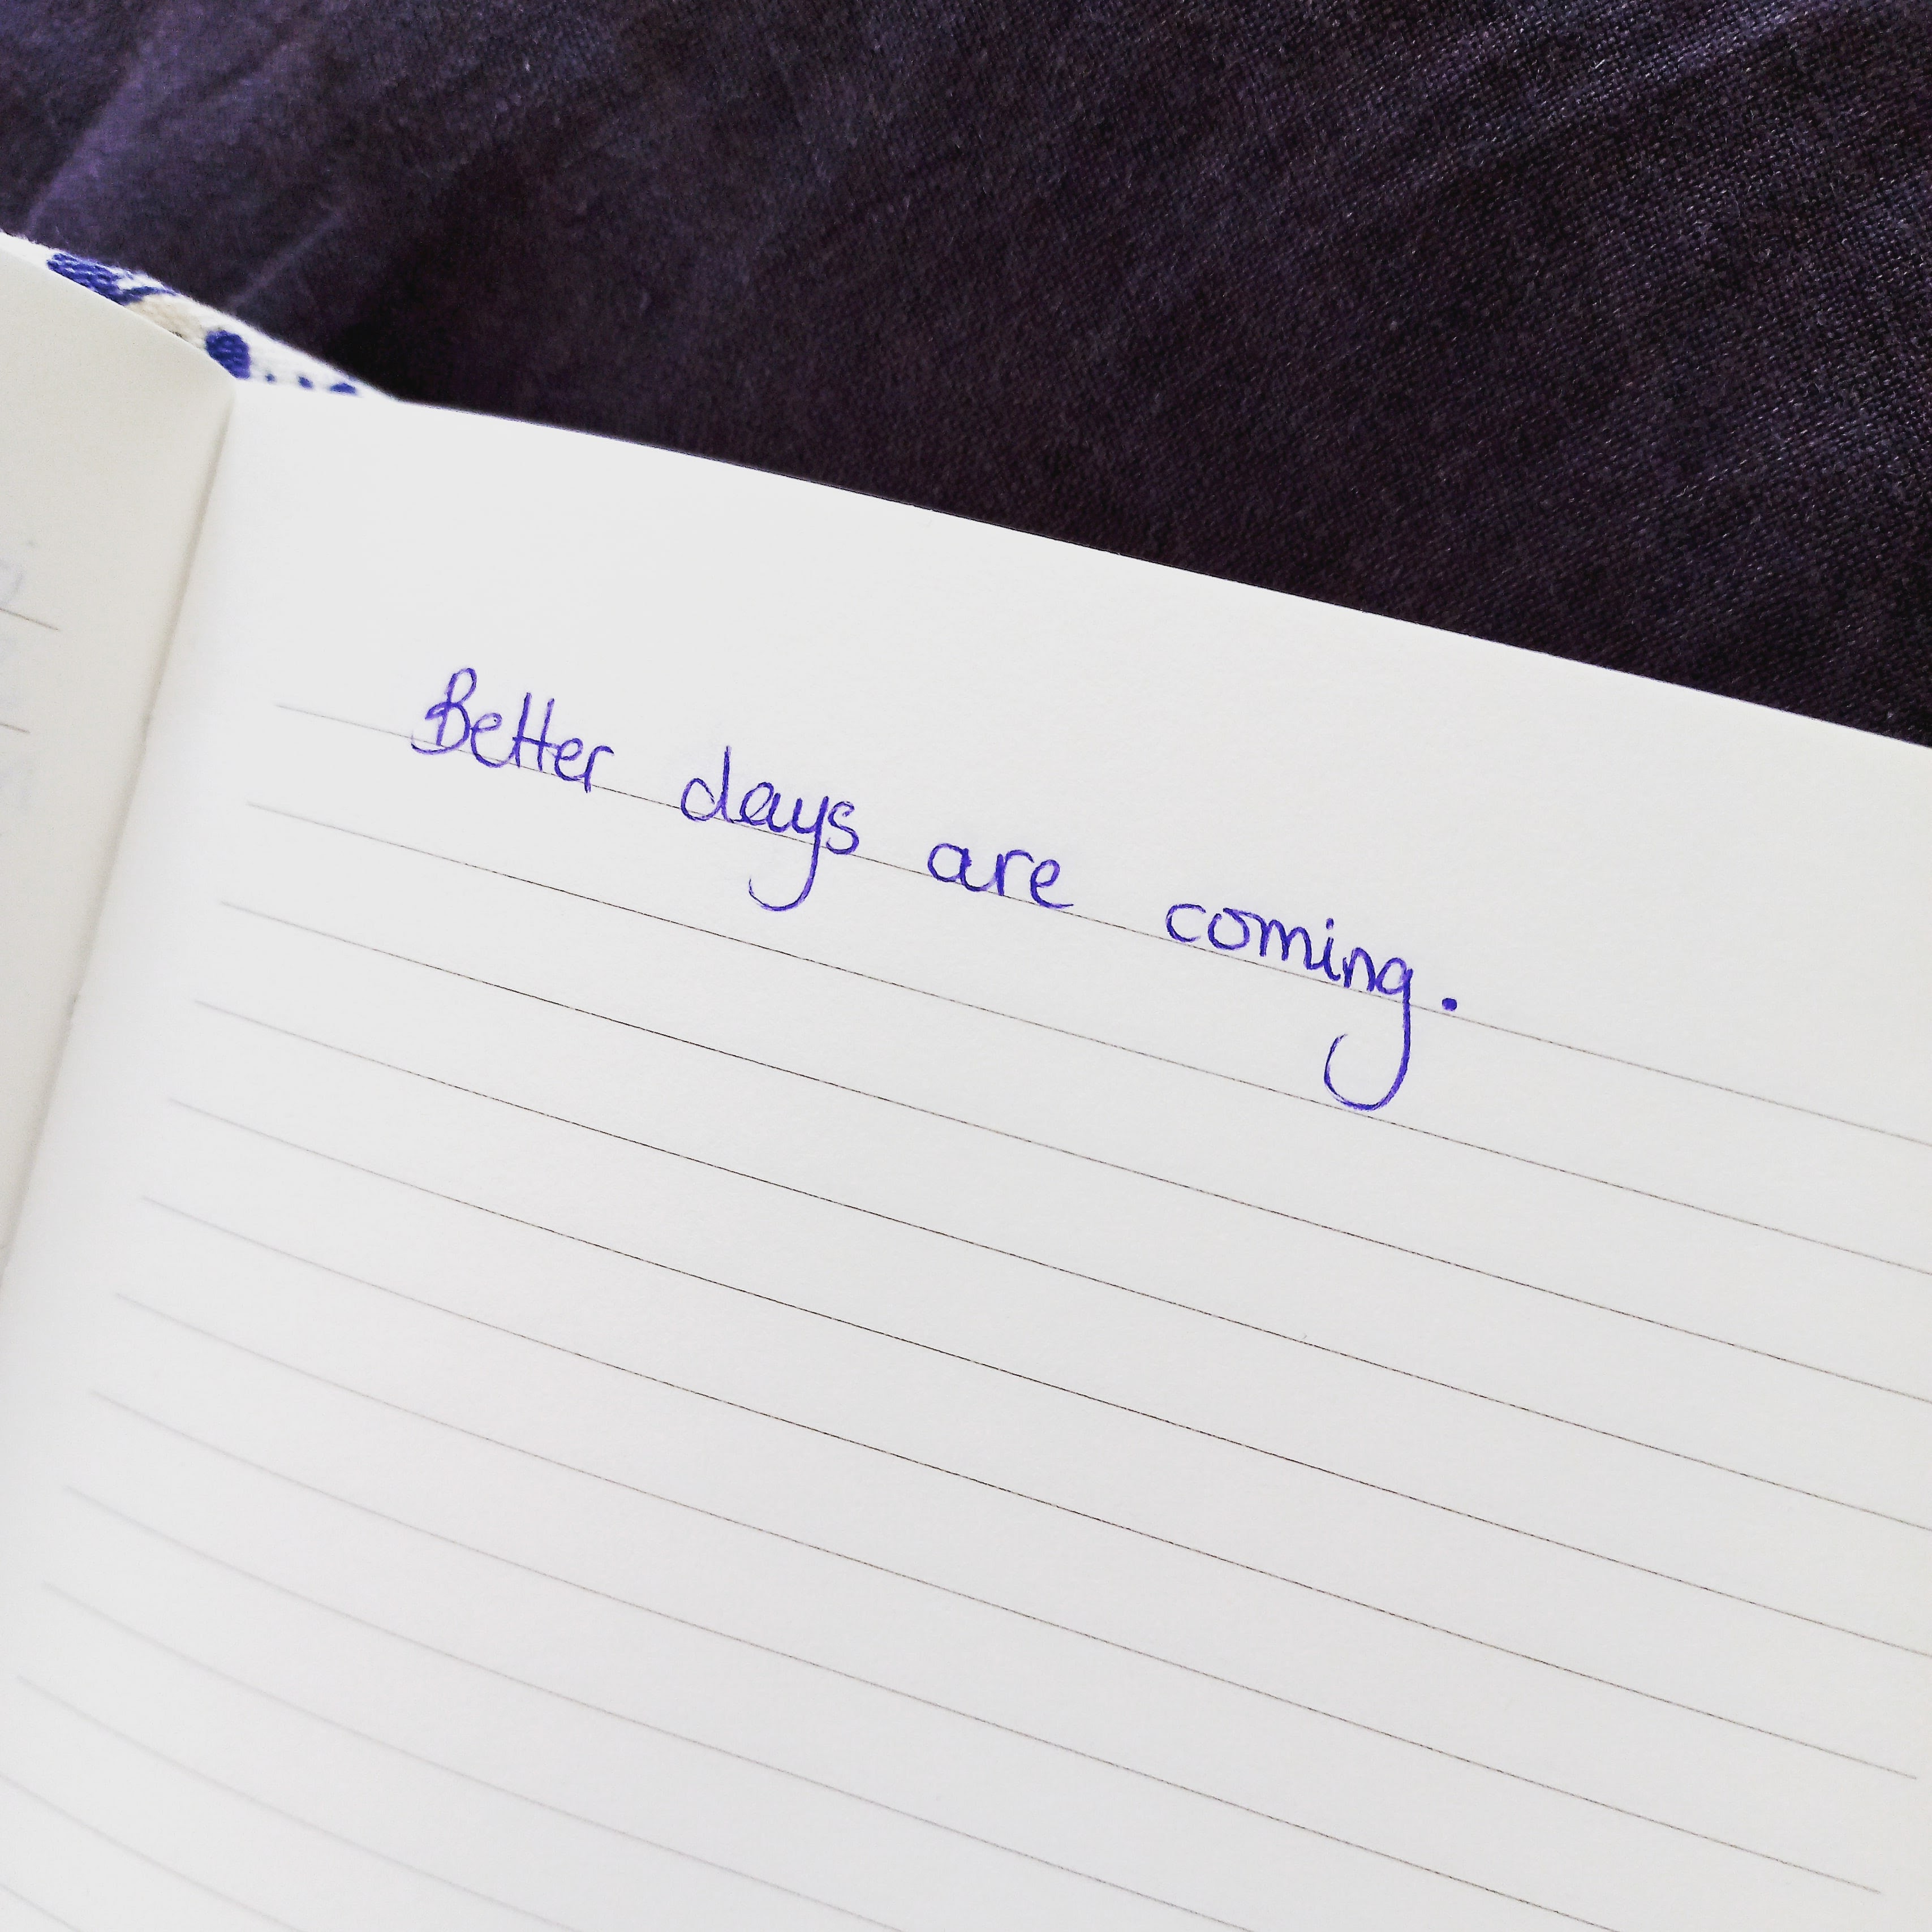 Better days are coming.